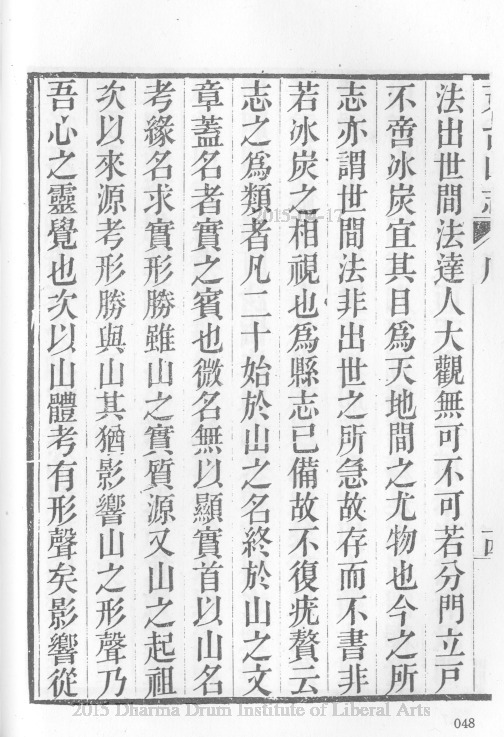 法出世間法達人大觀無可不可若分門立戸
不啻冰炭宜其目爲天地間之尤物也今之所
志亦謂世間法非出世之所急故存而不書非
若冰炭之相視也爲縣志已備故不復疣贅云
志之爲類者凡二十始於山之名終於山之文
章蓋名者實之賓也微名無以顯實首以山名
考緣名求實形勝雖山之實質源又山之起祖
次以來源考形勝與山其猶影響山之形聲乃
吾心之靈覺也次以山體考有形聲矣影響從
2015 Dharma Drum Institute of Liberal Arts
048